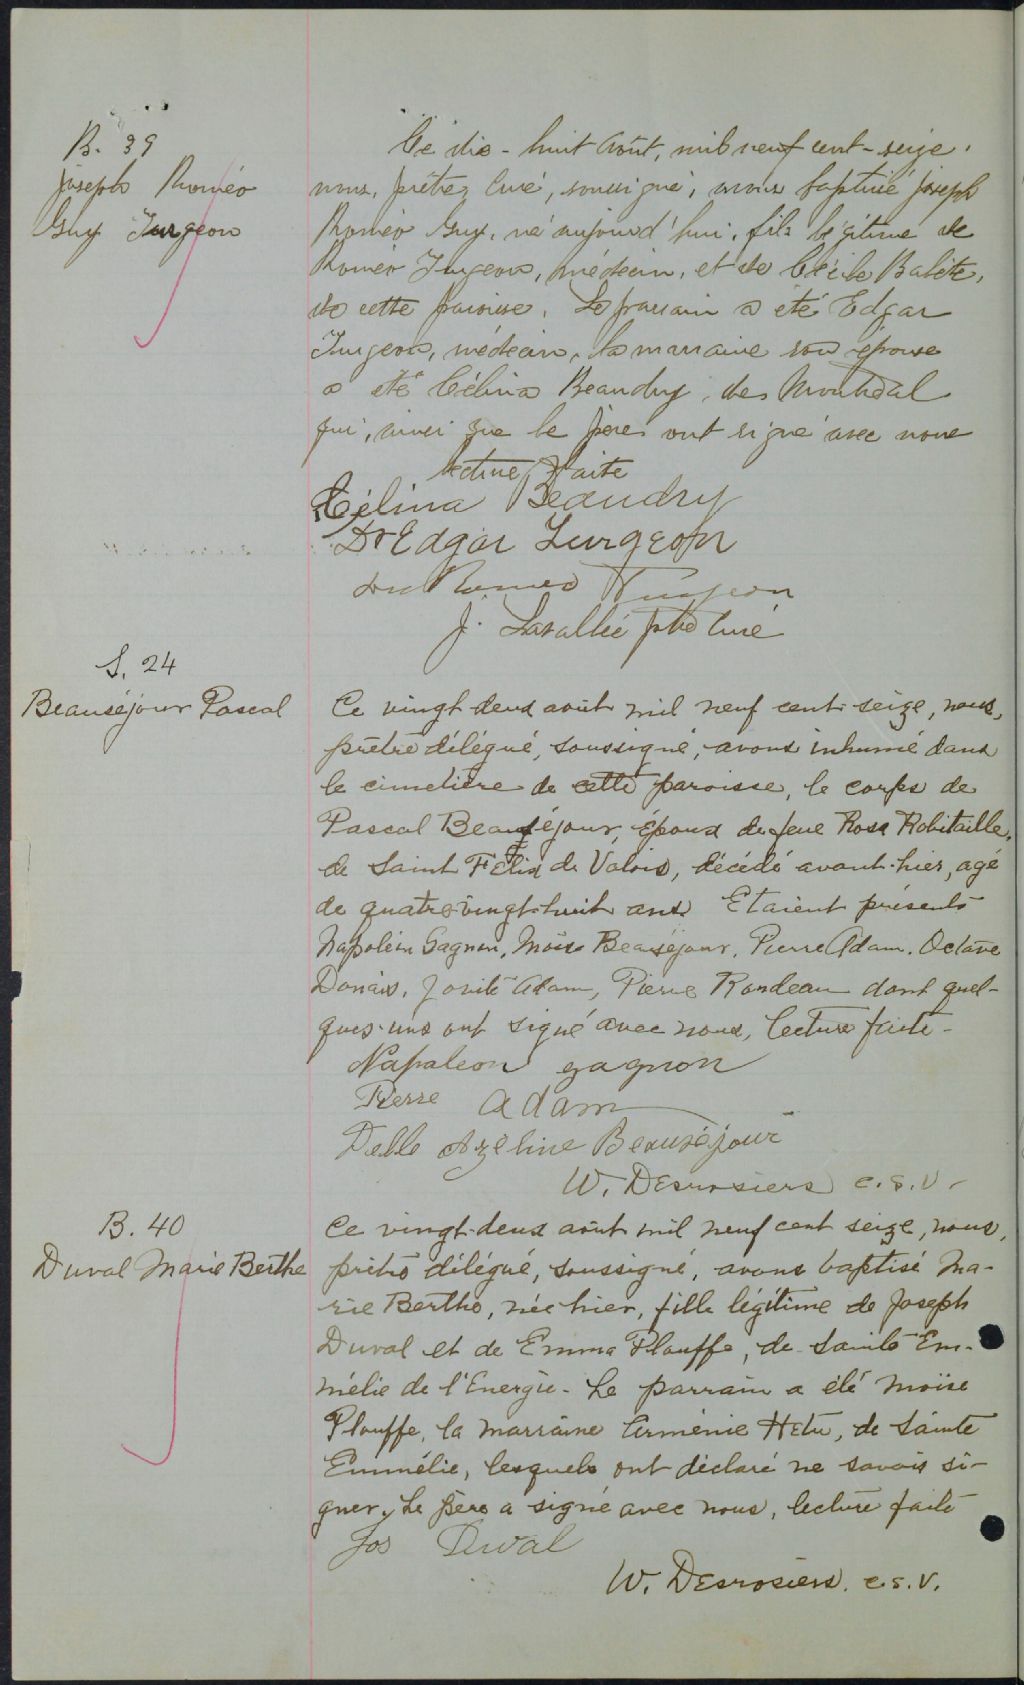 B. 39
Joseph Roméo
Guy Turgeon
Ce dix-huit août, mil neuf cent-seize,
nous, prêtre, curé, soussigné, avons baptisé Joseph
Roméo Guy, né aujourd'hui, fils légitime de
Roméo Turgeon, médecin, et de Cécile
de cette paroisse. Le parrain a été Edgar
Turgeon, médecin, la marraine son épouse
a été Célina Beaudry, de Montréal
qui, ainsi que le père ont signé avec nous
lecture faite
Célina Beaudry
Dr Edgar Turgeon
Romeo Turgeon
J. Lasallié ptre curé
S. 24
Beauséjour Pascal
Ce vingt-deux août mil neuf cent seize, nous,
prêtre délégué, soussigné, avons inhumé dans
le cimetière de cette paroisse, le corps de
Pascal Beauséjour, époux de feue Rosa Robitaille,
de Saint Félix de Valois, décédé avant-hier, agé
de quatre-vingt-huit ans. Etaient présents
Napoléon Gagnon, Moïse Beauséjour, Pierre Adam, Octave
Donais, Jovite Adam, Pierre Rondeau dont quel-
ques-uns ont signé avec nous, lecture faite-
Napoleon gagnon
Pierre adam
Delle Azéline Beauséjour
W. Desrosiers c.s.v.
B. 40
Duval Marie Berthe
Ce vingt-deux août mil neuf cent seize, nous,
prêtre délégué, soussigné, avons baptisé Ma-
rie Berthe, née hier, fille légitime de Joseph
Duval et de Emma Plouffe, de Sainte Em-
mélie de l'Energie- Le parrain a été Moïse
Plouffe, la marraine Arménie Hetu, de Sainte
Emmélie, lesquels ont déclaré ne savoir si-
gner, Le père a signé avec nous, lecture faite
Jos Duval
W. Desrosiers. c.s.v.